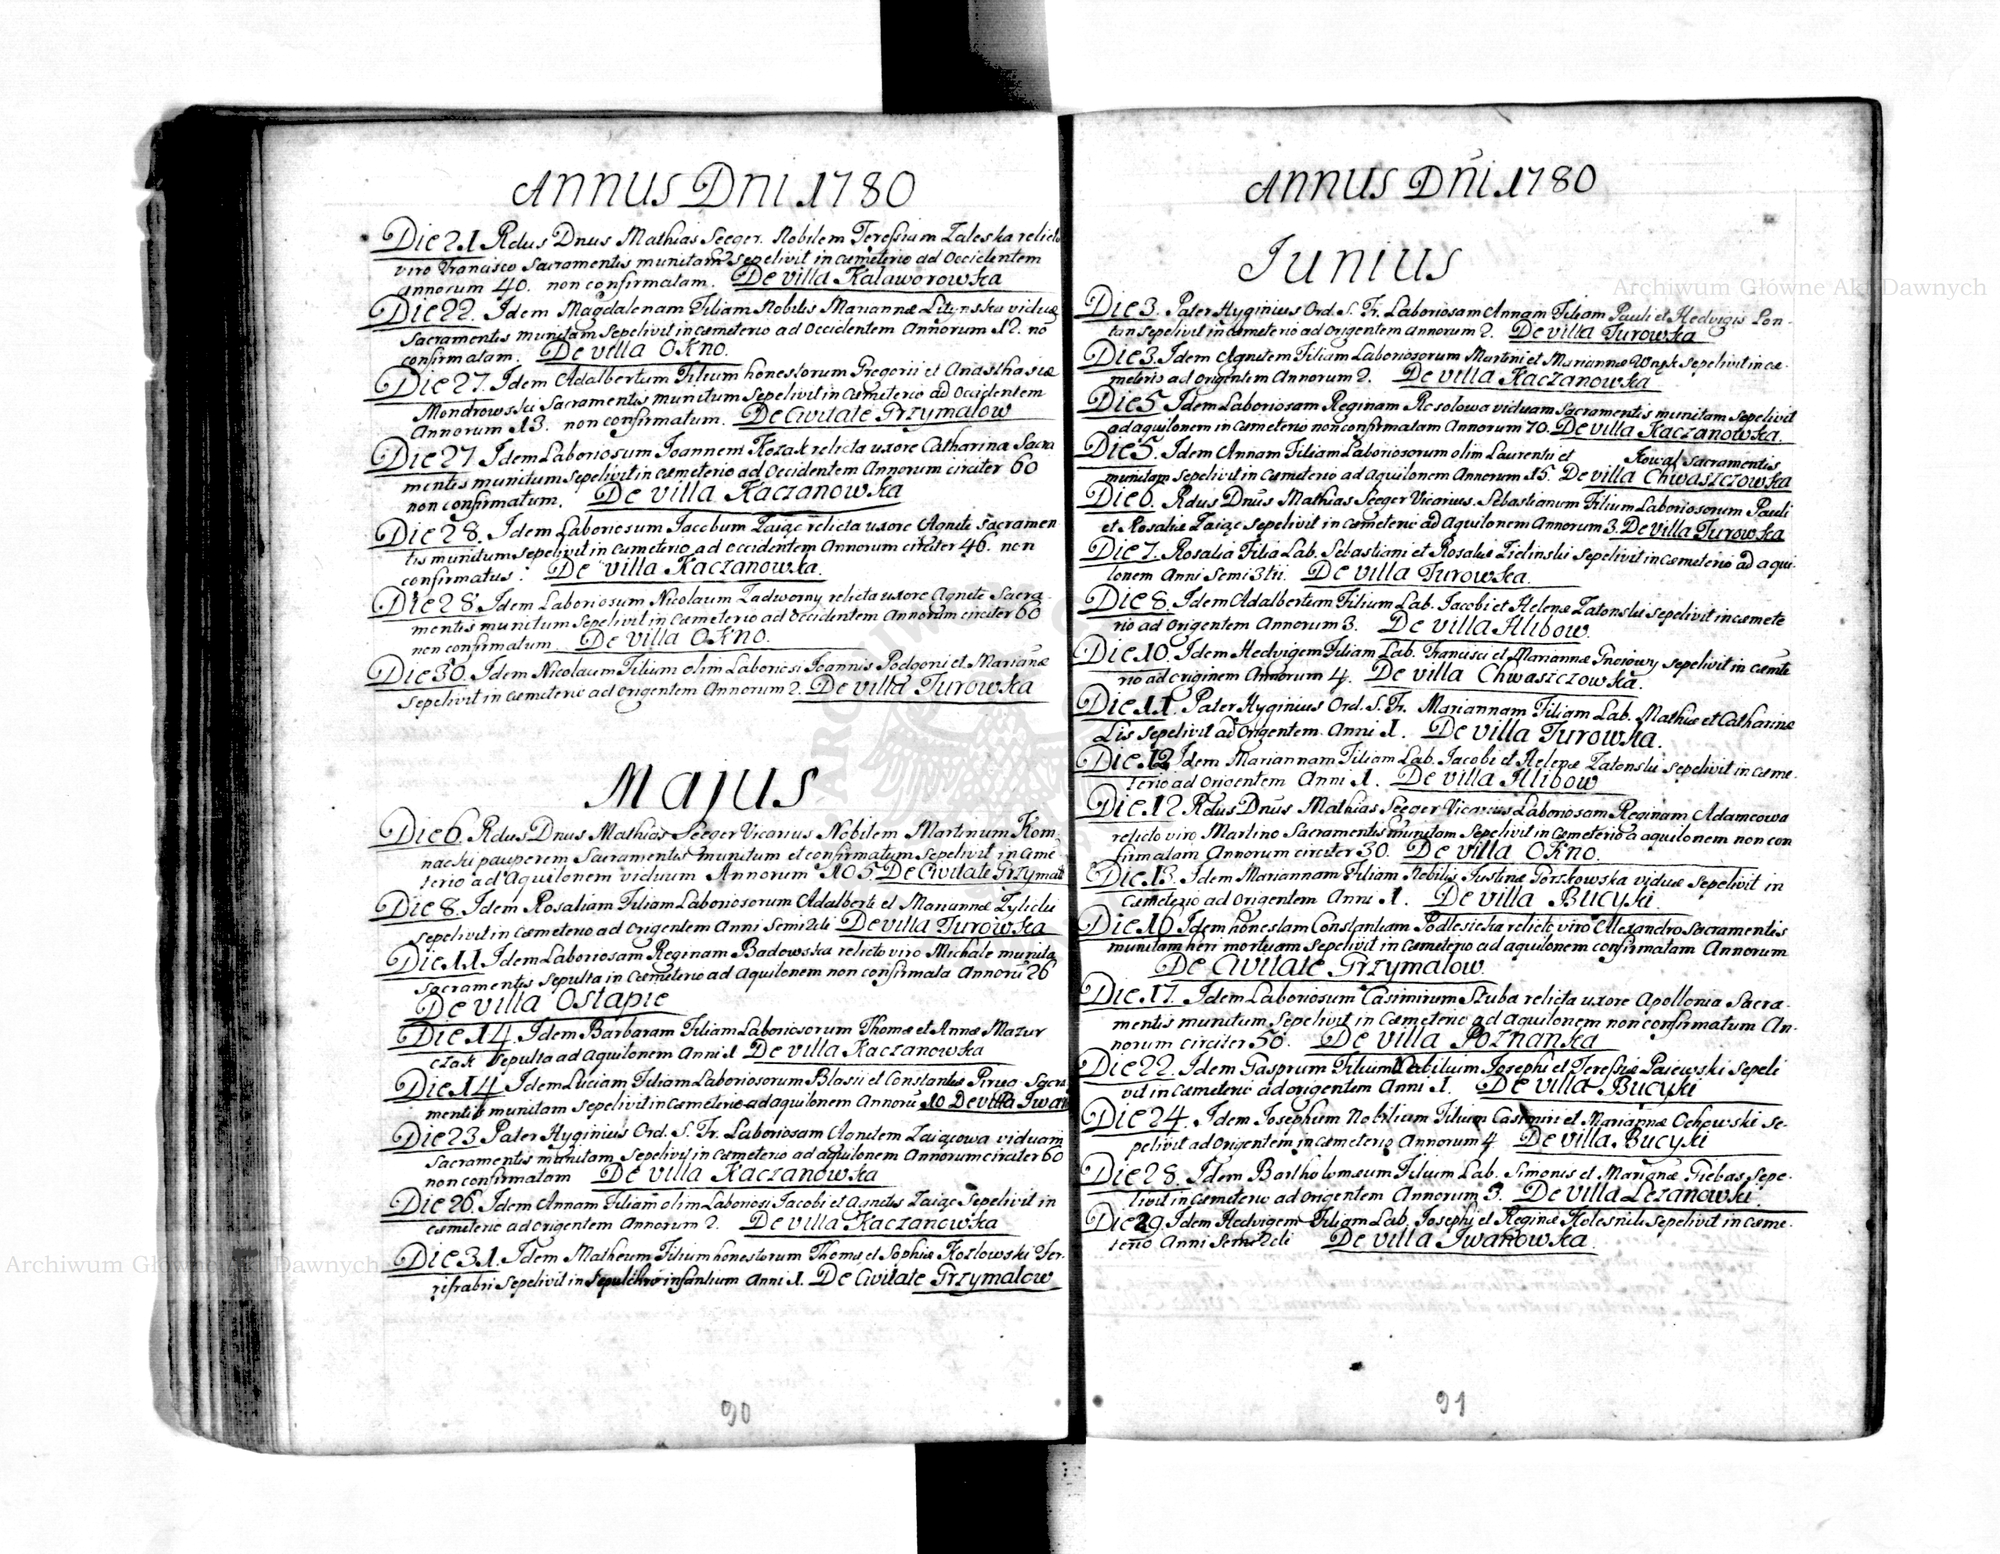 ANNUS Dni 1780
Die 21 Rdus Dnus Mathias Seeger. Nobilem Teressiam Zaleska relicto
viro Francisco Sacramentis munitam sepelivit in cæmeterio ad Occidentem
annorum 40. non confirmatam. De villa Kalaworowka
Die 22. Idem Magdalenam Filiam Nobilis Mariannæ Litynska viduæ
Sacramentis munitam Sepelivit in cæmeterio ad Occidentem Annorum 12. no
confirmatam. De villa Okno.
Die 27. Idem Adalbertum Filium honestorum Gregorii et Anasthasiæ
Mondrowski Sacramentis munitum Sepelivit in Cæmeterio ad Occidentem
Annorum 13. non confirmatum. De Civitate Grzymalow
Die 27. Idem Laboriosum Joannem Kozak relicta uxore Catharina Sacra
mentis munitum sepelivit in cæmeterio ad Occidentem Annorum circiter 60
non confirmatum. De villa Kaczanowka
Die 28. Idem Laboriosum Jacobum Zaiąc relicta uxore Agnete Sacramen
tis munitum sepelivit in cæmeterio ad Occidentem Annorum circiter 46. non
confirmatus. De villa Kaczanowka.
Die 28. Idem Laboriosum Nicolaum Zadworny relicta uxore Agnete Sacra-
mentis munitum Sepelivit in Cæmeterio ad Occidentem Annorum circiter 60
non confirmatum De villa Okno.
Die 30. Idem Nicolaum Filium olim Laboriosi Joannis Podgoni et Mariannæ
sepelivit in cæmeterio ad Origentem Annorum 2. De villa Turowka
Majus
Die 6. Rdus Dnus Mathias Seeger Vicarius Nobilem Martinum Kom
nacki pauperem Sacramentis munitum et confirmatum sepelivit in Cæme
terio ad Aquilonem viduum Annorum 105 De Civitate Grzymal
Die 8. Idem Rosaliam Filiam Laboriosorum Adalberti et Mariannæ Zylicki
sepelivit in cæmeterio ad Origentem Anni Semi 2di De villa Turowka
Die 11 Idem Laboriosam Reginam Badowska relicto viro Michale munita
Sacramentis sepulta in Cæmeterio ad Aquilonem non confirmata Annorū 26
De villa Ostapie
Die 14. Idem Barbaram Filiam Laboriosorum Thomæ et Annæ Mazur
czak Sepulta ad Aquilonem Anni 1 De villa Kaczanowka
Die 14 Idem Luciam Filiam Laboriosorum Blasii et Constantiæ Pirug Sacra
mentis munitam sepelivit in cæmeterio ad aquilonem Annorū 10 De villa Iwan
Die 23 Pater Hyginius Ord. S. Fr. Laboriosam Agnetem Zaiącowa viduam
Sacramentis munitam Sepelivit in cæmeterio ad aquilonem Annorum circiter 60
non confirmatam De villa Kaczanowka
Die 26. Idem Annam Filiam olim Laboriosi Jacobi et Agnetis Zaiąc Sepelivit in
cæmeterio ad Origentem Annorum 2. De villa Kaczanowka
Die 31. Idem Matheum Filium honestorum Thomæ et Sophiæ Kozlowski Fer-
rifabri Sepelivit in Sepulchro infantium Anni 1. De Civitate Grzymalow
90
ANNUS Dn̄i 1780
Junius
Die 3. Pater Hyginius Ord. S. Fr. Laboriosam Annam Filiam Pauli et Hedvigis Lon-
tan Sepelivit in cæmeterio ad Origentem annorum 2. De villa Turowka
Die 3. Idem Agnetem Filiam Laboriosorum Martini et Mariannæ Wnyk sepelivit in cæ-
meterio ad Origentem Annorum 2. De villa Kaczanowka
Die 5 Idem Laboriosam Reginam Rosolowa viduam Sacramentis munitam Sepelivit
ad aquilonem in Cæmeterio non confirmatam Annorum 70. De villa Kaczanowka.
Die 5. Idem Annam Filiam Laboriosorum olim Laurentii et Kowal Sacramentis
munitam Sepelivit in Cæmeterio ad Aquilonem Annorum 15. De villa Chwaszczowka
Die 6. Rdus Dnūs Mathias Seeger Vicarius. Sebastianum Filium Laboriosorum Pauli
et Rosaliæ Zaiąc sepelivit in Cæmeterio ad Aquilonem Annorum 3. De villa Turowka
Die 7. Rosalia Filia Lab. Sebastiani et Rosaliæ Zielinski sepelivit in cæmeterio ad aqui-
lonem Anni Semi 3tii. De villa Turowka.
Die 8. Idem Adalbertum Filium Lab. Jacobi et Helenæ Zatonski sepelivit in cæmete
rio ad Origentem Annorum 3. De villa Hlibow.
Die 10. Idem Hedvigem Filiam Lab. Francisci et Mariannæ Gnoiowy sepelivit in cæmte
rio ad originem Annorum 4. De villa Chwaszczowka.
Die 11. Pater Hyginius Ord. S. Fr. Mariannam Filiam Lab. Mathiæ et Catharinæ
Lis sepelivit ad Origentem Anni 1. De villa Turowka.
Die 12 Idem Mariannam Filiam Lab. Jacobi et Helenæ Zatonski sepelivit in cæme-
terio ad Origentem Anni 1. De villa Hlibow
Die 12. Rdus Dnūs Mathias Seeger Vicarius Laboriosam Reginam Adamcowa
relicto viro Martino Sacramentis munitam Sepelivit in Cæmeterio a aquilonem non con
firmatam Annorum circiter 30. De villa Okno.
Die 13. Idem Mariannam Filiam Nobilis Justinæ Gorzkowska viduæ sepelivit in
Cæmeterio ad Origentem Anni 1. De villa Bucyki.
Die 16 Idem honestam Constantiam Podlesiecka relicto viro Allexandro Sacramentis
munitam heri mortuam sepelivit in Cæmeterio ad aquilonem confirmatam Annorum
De Civitate Grzymalow.
Die 17. Idem Laboriosum Casimirum Szuba relicta uxore Apollonia Sacra-
mentis munitum Sepelivit in Cæmeterio ad Aquilonem non confirmatum An-
norum circiter 50. De villa Poznanka
Die 22. Idem Gasprum Filium Nobilium Josephi et Teressiæ Paiewski sepeli
vit in Cæmeterio ad origentem Anni 1. De villa Bucyki
Die 24. Idem Josephum Nobilium Filium Casimiri et Mariannæ Ochowski se-
pelivit ad Origentem in cæmeterio Annorum 4 De villa Bucyki
Die 28. Idem Bartholomæum Filium Lab. Simonis et Mariannæ Grebas sepe-
livit in Cæmeterio ad Origentem Annorum 3. De villa Lezanowki
Die 29. Idem Hedvigem Filiam Lab. Josephi et Reginæ Kolesnik sepelivit in cæme-
terio Anni Semi 2di De villa Iwanowka.
91
Archiwum Główne Akt Dawnych
Archiwum Główne Akt Dawnych